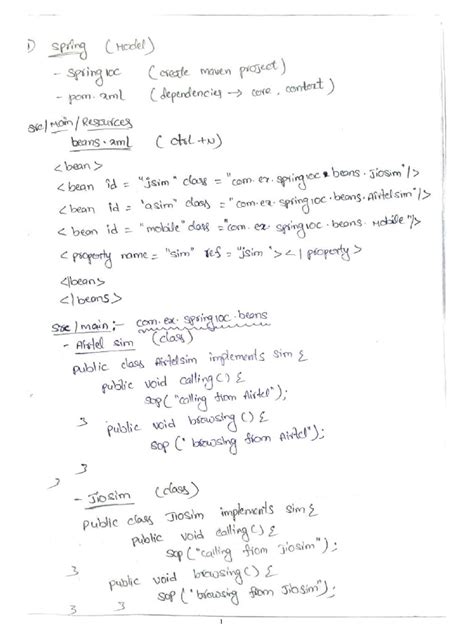 1) Spring (Model)
- Spring IOC (create maven project)
- pom.xml (dependencies → core, context)
src/main/Resources
beans.xml (ctrl+N)
<bean>
<bean id = "jsim" class = "com.ex.springioc.beans.Jiosim"/>
<bean id = 'asim" class = "com.ex.springioc.beans.Airtelsim"/>
<bean id = "mobile" class = "com.ex.springioc.beans.Mobile"/>
<property name = "sim" ref = "jsim"></property>
</bean>
</beans>
src/main:- com.ex.springioc.beans
- Airtel sim (class)
public class Airtelsim implements sim {
public void calling() {
sop("calling from Airtel");
} public void browsing() {
sop ("browsing from Airtel");
}
}
- Jiosim (class)
public class Jiosim implements sim {
public void calling() {
sop("calling from Jiosim");
} public void browsing() {
sop ("browsing from Jiosim");
} }
1